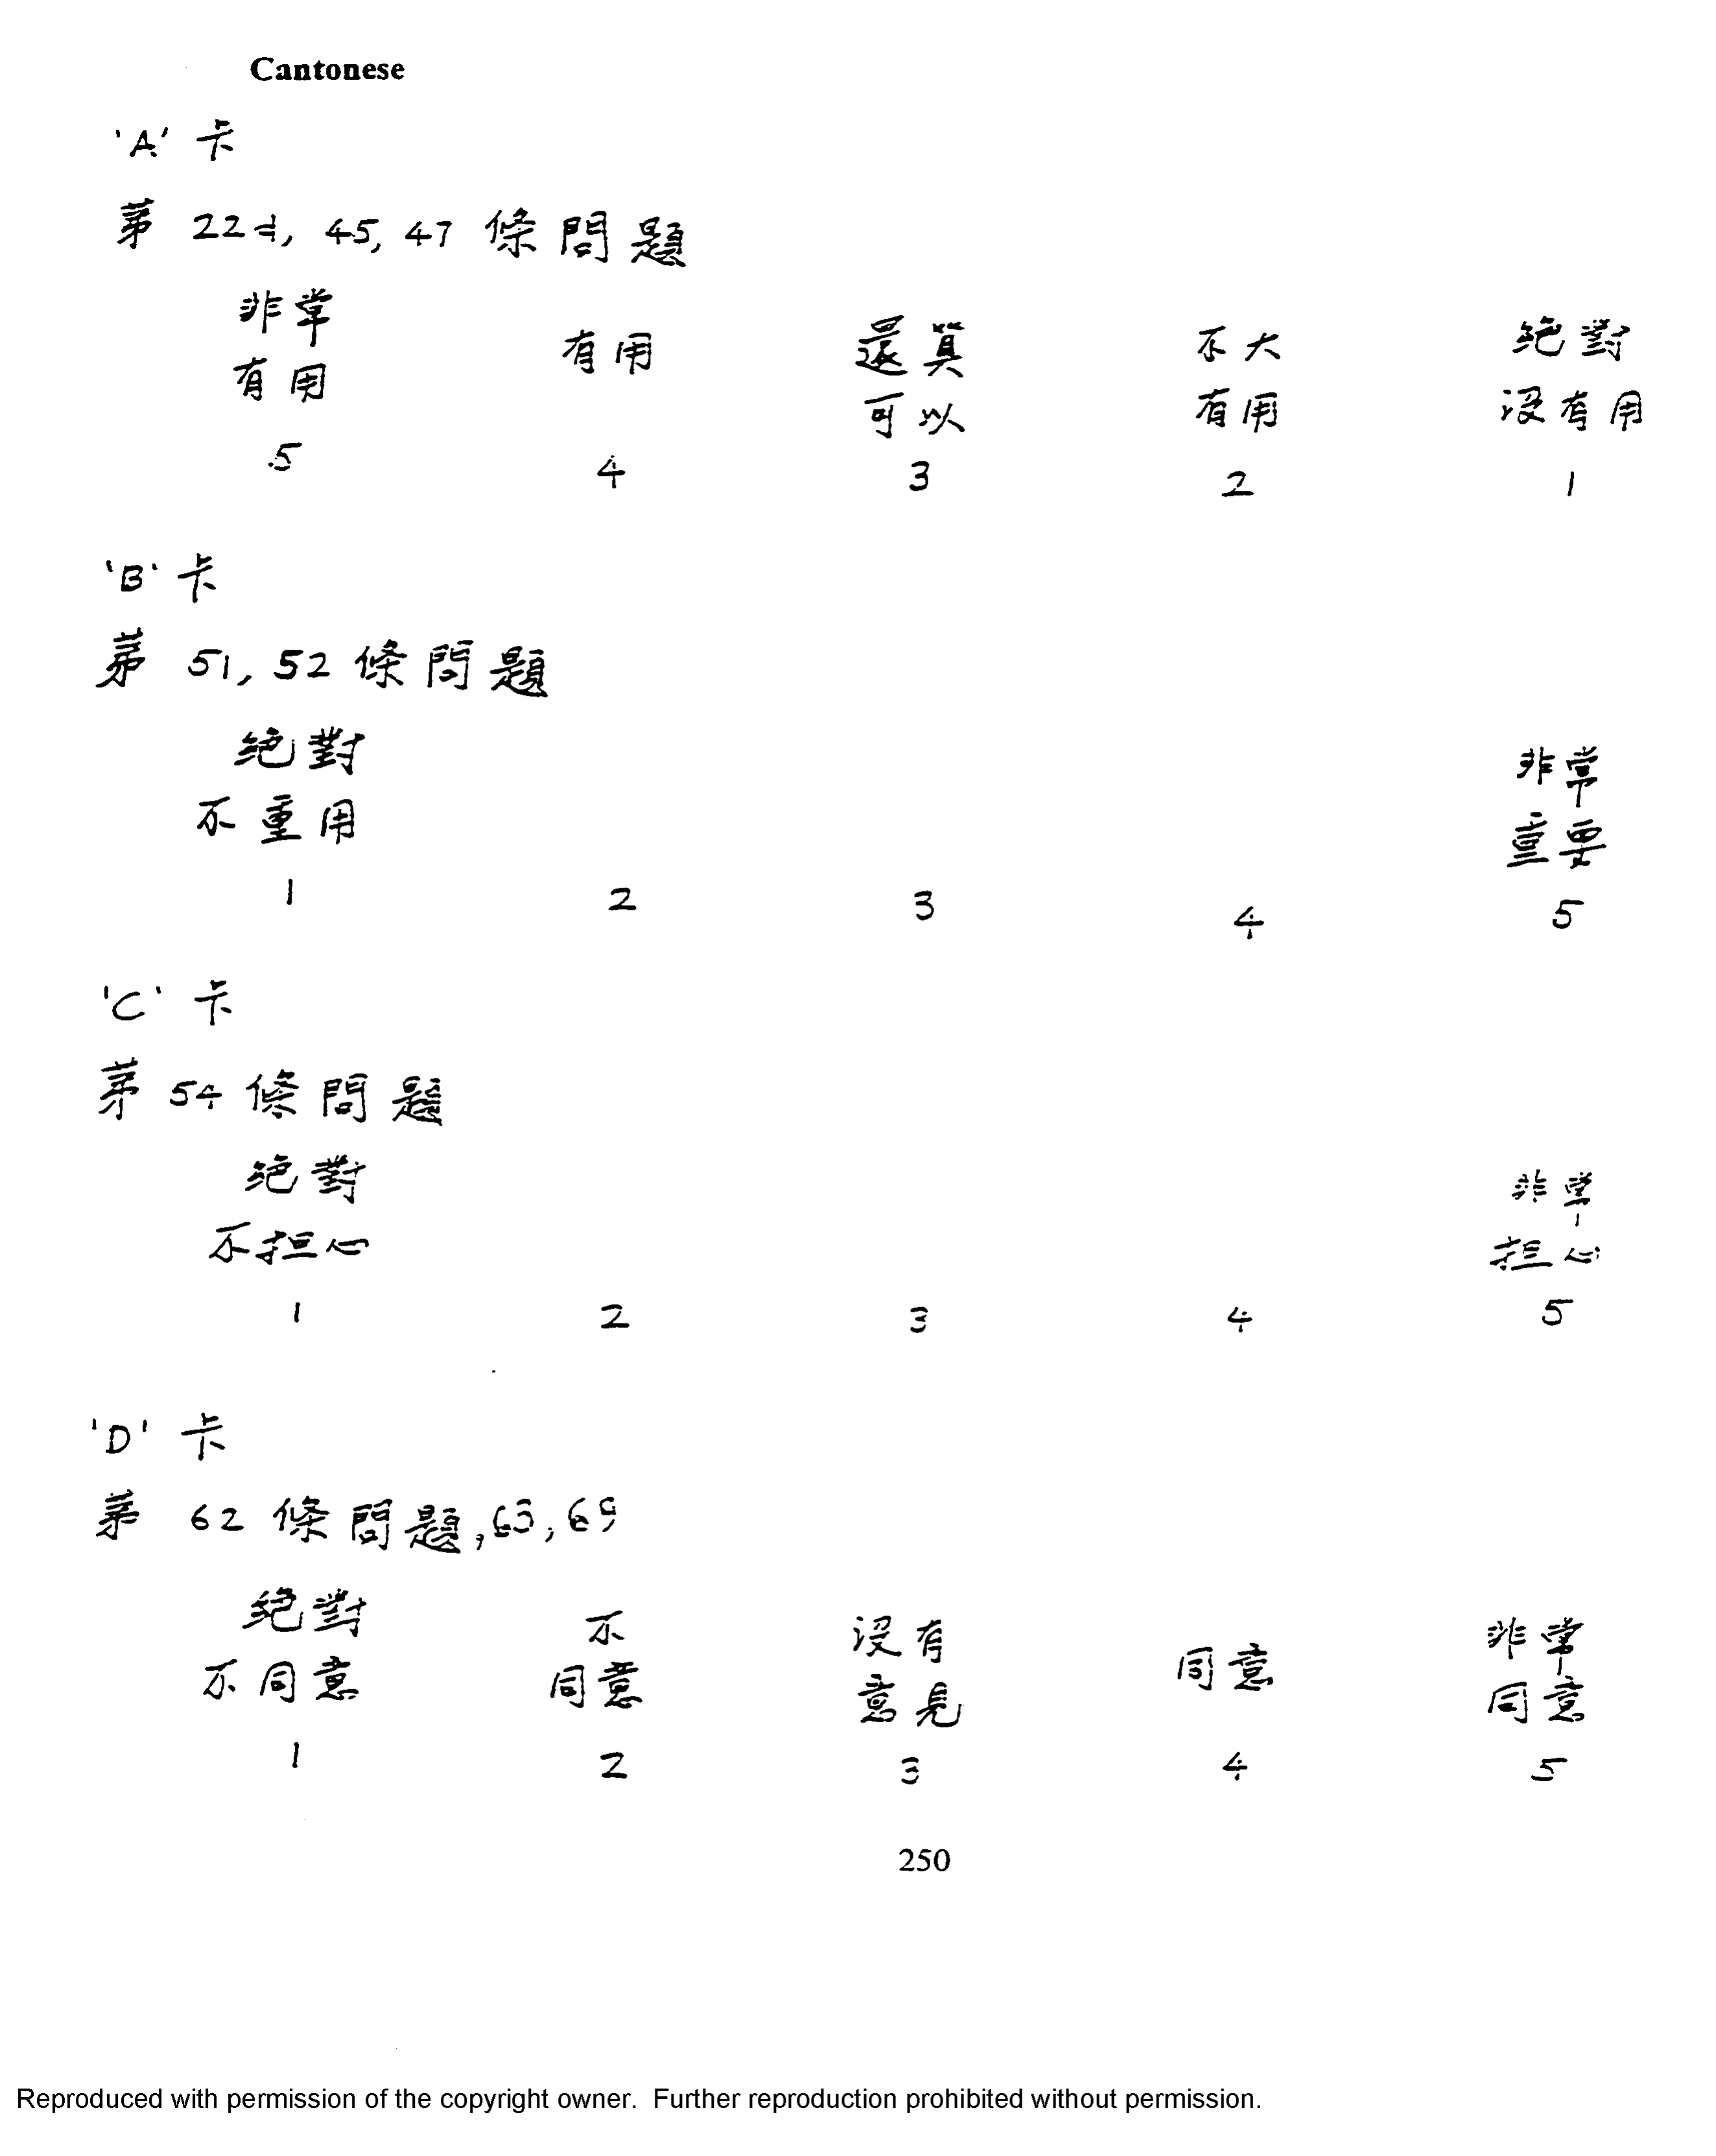 Cantonese
'A' 卡
第 22d, 45, 47 條問題
非常 有用 還算 不大 絕對
有用 可以 有用 沒有用
5 4 3 2 1
'B' 卡
第 51, 52 條問題
絕對 非常
不重用 重要
1 2 3 4 5
'C' 卡
第 54 條問題
絕對 非常
不担心 担心
1 2 3 4 5
'D' 卡
第 62 條問題, 63, 69
絕對 不 沒有 同意 非常
不同意 同意 意見 同意
1 2 3 4 5
250
Reproduced with permission of the copyright owner. Further reproduction prohibited without permission.